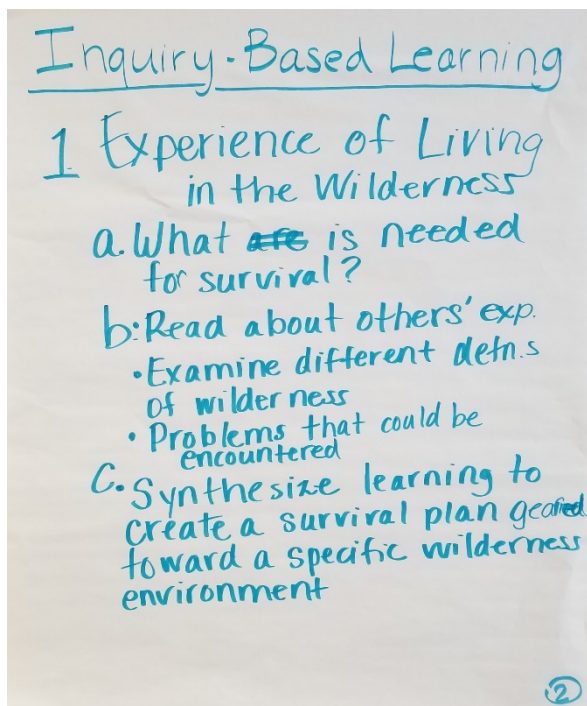 Inquiry-Based Learning
1 Experience of Living
in the Wilderness
a. What are is needed
for survival?
b. Read about others' exp.
• Examine different defn.s
of wilderness
• Problems that could be
encountered
c. Synthesize learning to
create a survival plan geared
toward a specific wilderness
environment
2